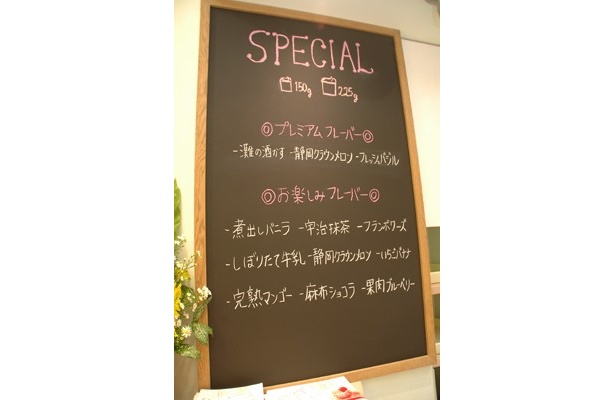 SPECIAL
150g 225g
◎プレミアムフレーバー◎
-灘の酒かす -静岡クラウンメロン -フレッシュバジル
◎お楽しみフレーバー◎
-煮出しバニラ -宇治抹茶 -フランボワーズ
-しぼりたて牛乳 -静岡クラウンメロン -いちごバナナ
-完熟マンゴー -麻布ショコラ -果肉ブルーベリー